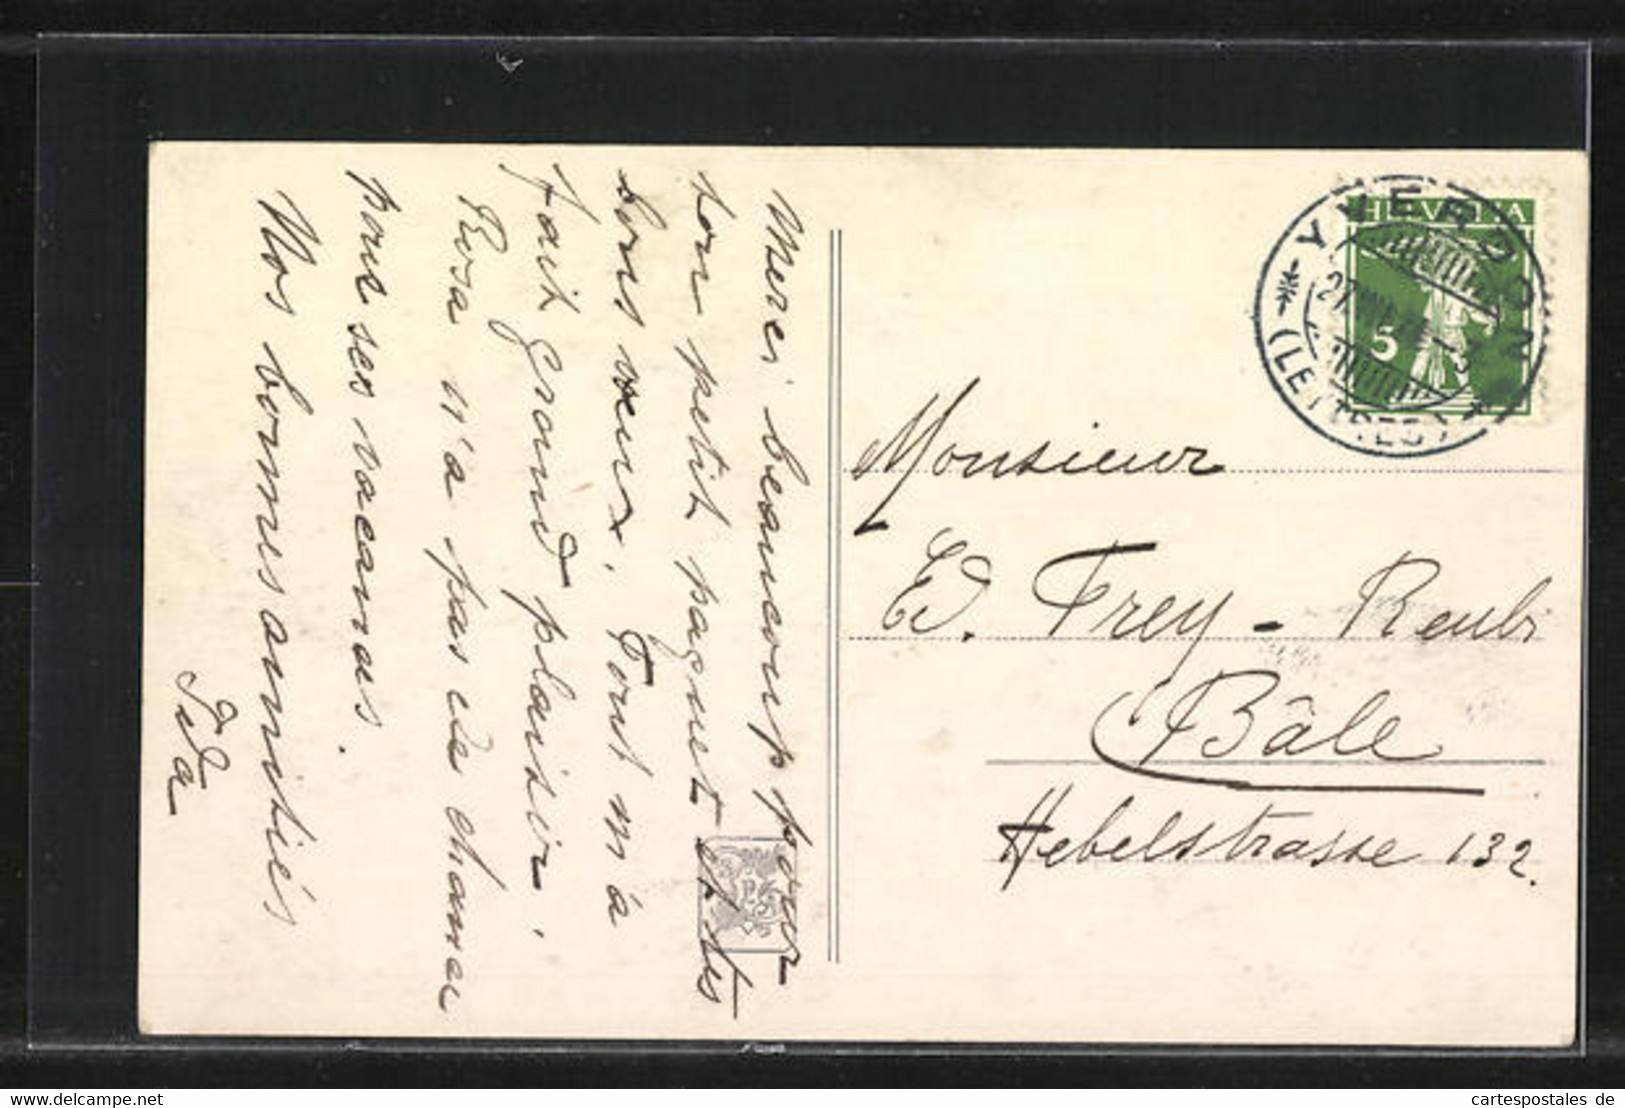 Merci beaucoup pour
ton petit paquet et tes
bons vœux. Tout m'a
fait grand plaisir.
Rosa n'a pas de chance
pour ses vacances.
Nos bonnes amitiés
Ida
HELVETIA
5
YVERDON
(LETTRES)
27
Monsieur
Ed. Frey-Reubi
Bâle
Hebelstrasse 132.
https://www.delcampe.net
cartespostales de